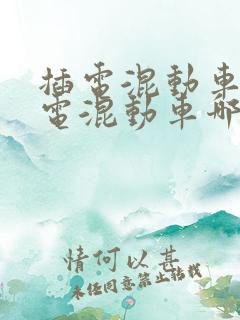 插電混動車
電混動車哪
情何以甚
未经同意禁止转载